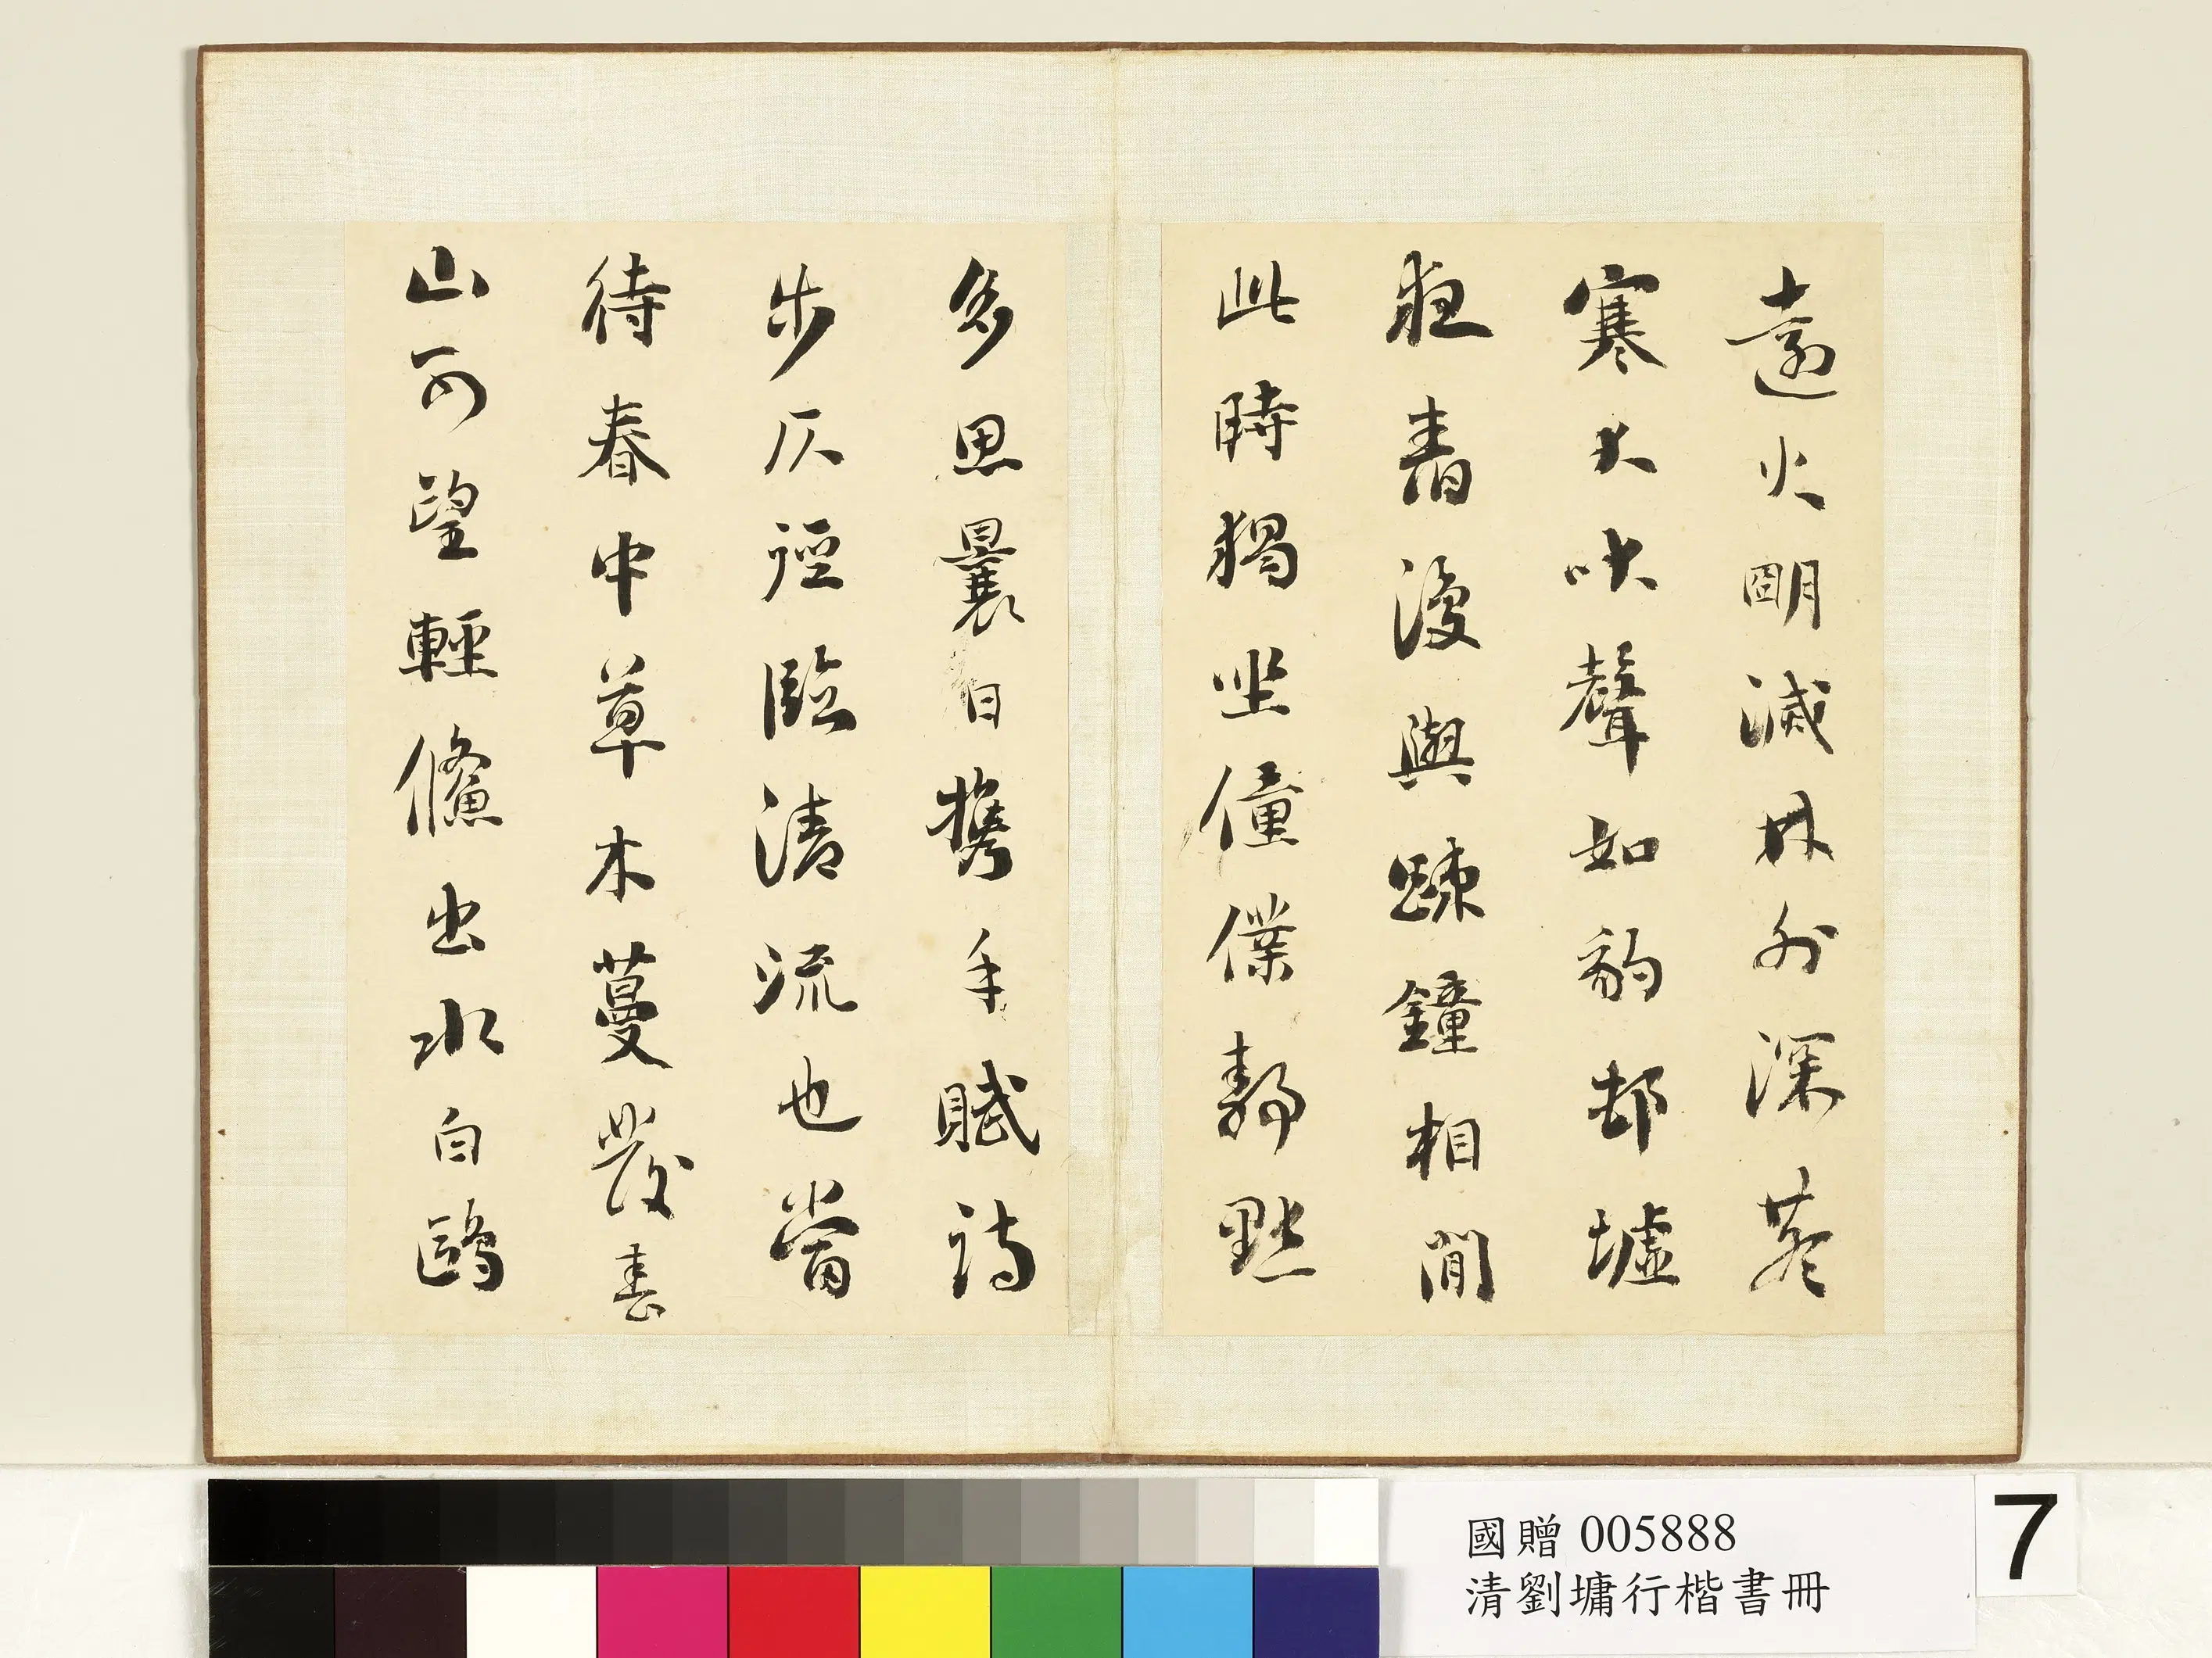 遠火明滅林外深巷
寒犬吠聲如豹邨墟
夜舂復與踈鐘相間
此時獨坐僮僕靜默
多思曩日攜手賦詩
步仄逕臨清流也當
待春中草木蔓發春
山可望輕鯈出水白鷗
國贈 005888
清劉墉行楷書冊
7